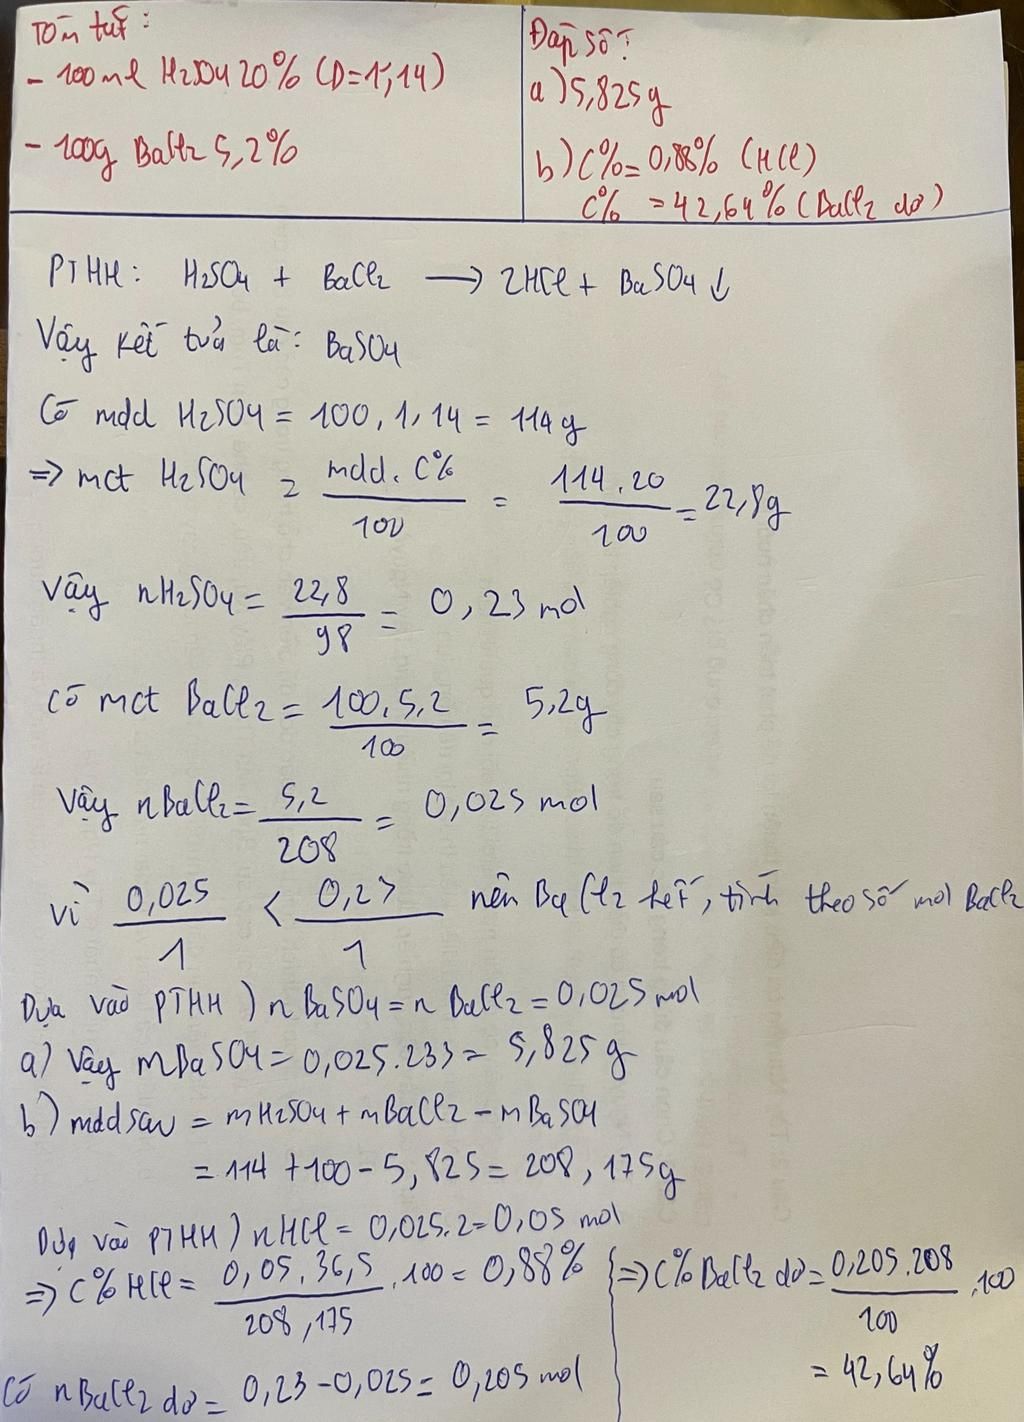 Tóm tắt:
- 100ml H2SO4 20% (D=1,14)
- 100g BaCl2 5,2%
Đáp số:
a) 5,825g
b) C% = 0,88% (HCl)
C% = 42,64% (BaCl2 dư)
PTHH: H2SO4 + BaCl2 → 2HCl + BaSO4 ↓
Vậy kết tủa là: BaSO4
Có mdd H2SO4 = 100 . 1,14 = 114g
=> mct H2SO4 = mdd . C% / 100 = 114 . 20 / 100 = 22,8g
Vậy nH2SO4 = 22,8 / 98 = 0,23 mol
Có mct BaCl2 = 100 . 5,2 / 100 = 5,2g
Vậy nBaCl2 = 5,2 / 208 = 0,025 mol
Vì 0,025 / 1 < 0,23 / 1 nên BaCl2 hết, tính theo số mol BaCl2
Dựa vào PTHH ) n BaSO4 = n BaCl2 = 0,025 mol
a) Vậy mBaSO4 = 0,025.233 = 5,825 g
b) mdd sau = mH2SO4 + mBaCl2 - mBaSO4
= 114 + 100 - 5,825 = 208,175g
Dựa vào PTHH ) nHCl = 0,025.2 = 0,05 mol
=> C% HCl = 0,05 . 36,5 / 208,175 . 100 = 0,88%
Có nBaCl2 dư = 0,23 - 0,025 = 0,205 mol
=> C% BaCl2 dư = 0,205 . 208 / 100 . 100
= 42,64%